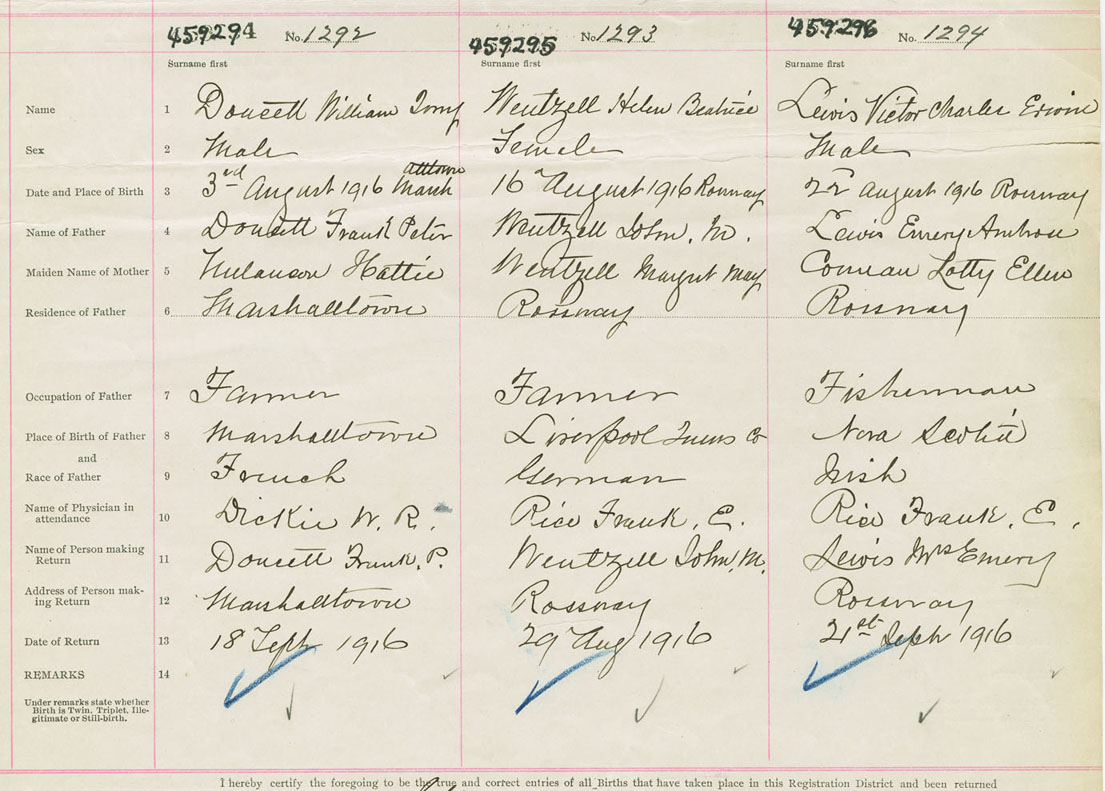 459294 No. 1292 459295 No 1293 459296 No. 1294
Surname first Surname first Surname first
Name 1 Doucett William Wentzell Helen Beatrice Lewis Victor Charles Erwin
Sex 2 Male Female Male
Date and Place of Birth 3 3rd August 1916 Marshalltown 16 August 1916 Rossway 22 August 1916 Rossway
Name of Father 4 Doucett Frank Peter Wentzell John. M. Lewis Emery Ambrose
Maiden Name of Mother 5 Hattie Wentzell Margret May Comeau Lotty Ellen
Residence of Father 6 Marshalltown Rossway Rossway
Occupation of Father 7 Farmer Farmer Fisherman
Place of Birth of Father 8 Marshalltown Liverpool Queens Co Nova Scotia
and
Race of Father 9 French German Irish
Name of Physician in
attendance 10 Dickie W. R. Rice Frank. E. Rice Frank. E.
Name of Person making
Return 11 Doucett Frank. P. Wentzell John. M. Lewis Mrs Emery
Address of Person mak-
ing Return 12 Marshalltown Rossway Rossway
Date of Return 13 18 Sept 1916 29 Aug 1916 21st Sept 1916
REMARKS 14
Under remarks state whether
Birth is Twin, Triplet, Ille-
gitimate or Still-birth.
I hereby certify the foregoing to be the true and correct entries of all Births that have taken place in this Registration District and been returned